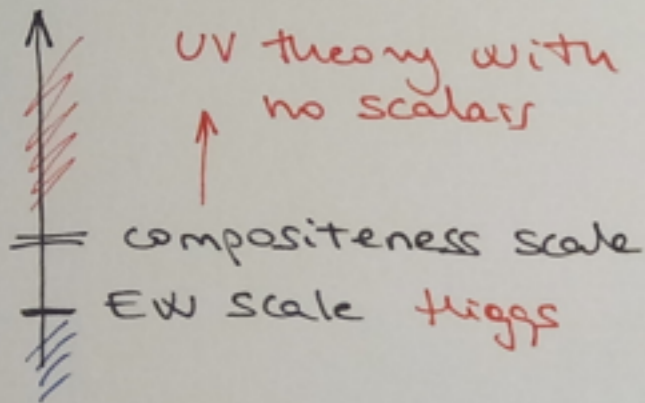 UV theory with
no scalars
compositeness scale
EW scale Higgs